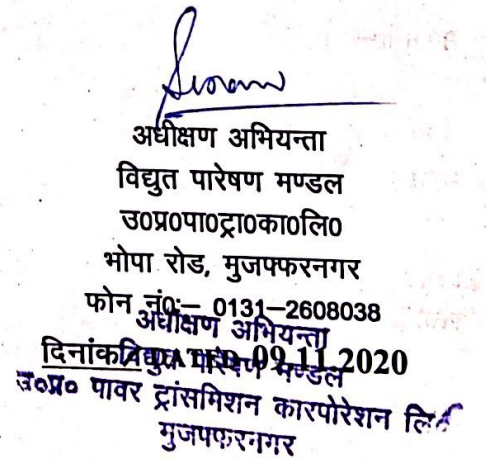 अधीक्षण अभियन्ता
विद्युत पारेषण मण्डल
उ०प्र०पा०ट्रा०का०लि०
भोपा रोड, मुजफ्फरनगर
फोन नं०:– 0131–2608038
अधीक्षण अभियन्ता
दिनांक/ DATED 09.11.2020
विद्युत पारेषण मण्डल
उ०प्र० पावर ट्रांसमिशन कारपोरेशन लि०
मुजफ्फरनगर